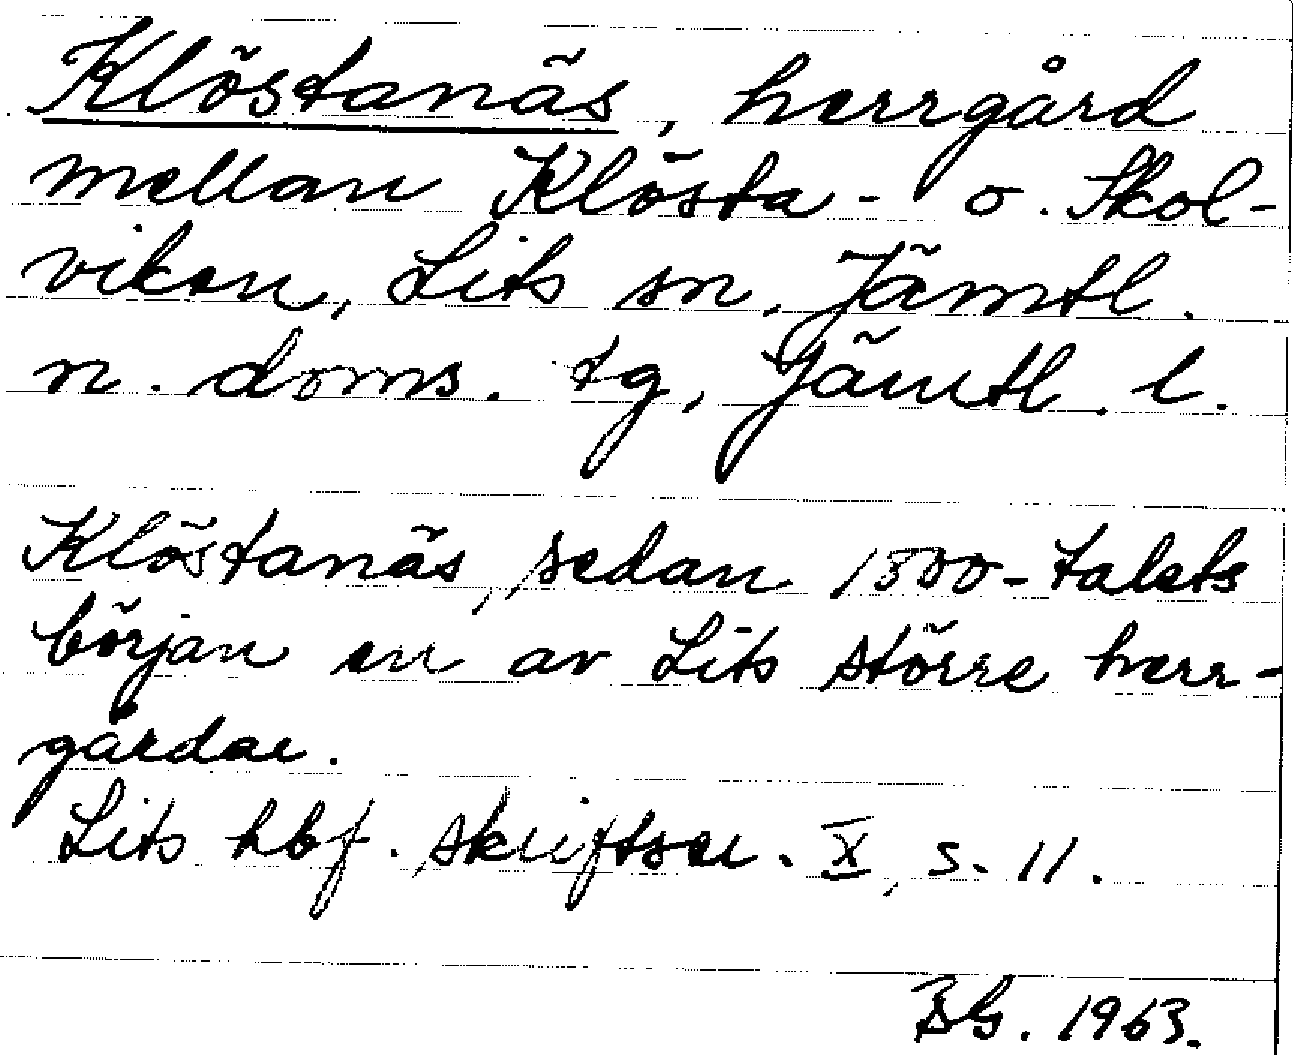 Klöstanäs, herrgård
mellan Klösta- o. Skol-
viken, Lits sn, Jämtl.
n. doms. tg, Jämtl. l.
Klöstanäs, sedan 1500-talets
början en av Lits större herr-
gårdar.
Lits hbf. skriftser. X, s. 11.
BG. 1963.